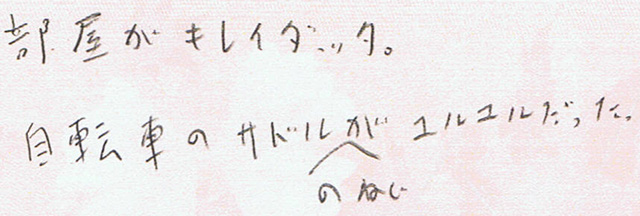 部屋がキレイダッタ。
自転車のサドルがユルユルだった。
のねじ